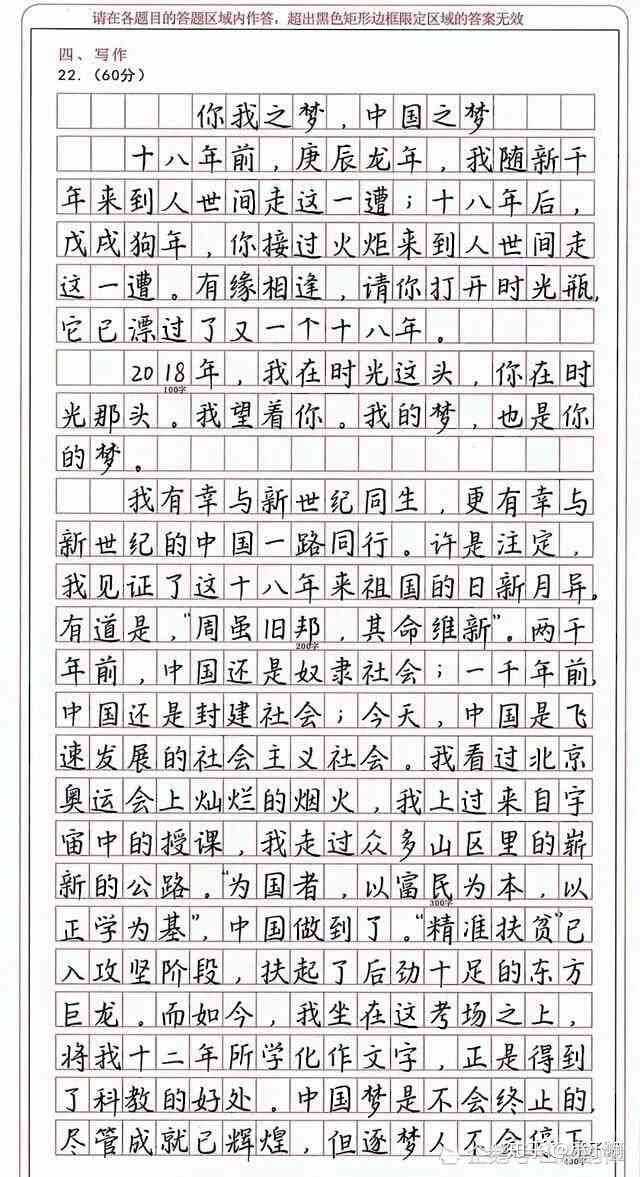 请在各题目的答题区域内作答，超出黑色矩形边框限定区域的答案无效
四、写作
22.（60分）
你我之梦，中国之梦
十八年前，庚辰龙年，我随新千
年来到人世间走这一遭；十八年后，
戊戌狗年，你接过火炬来到人世间走
这一遭。有缘相逢，请你打开时光瓶，
它已漂过了又一个十八年。
2018年，我在时光这头，你在时
100字
光那头。我望着你。我的梦，也是你
的梦。
我有幸与新世纪同生，更有幸与
新世纪的中国一路同行。许是注定，
我见证了这十八年来祖国的日新月异。
有道是，“周虽旧邦，其命维新”。两千
200字
年前，中国还是奴隶社会；一千年前，
中国还是封建社会；今天，中国是飞
速发展的社会主义社会。我看过北京
奥运会上灿烂的烟火，我上过来自宇
宙中的授课，我走过众多山区里的崭
新的公路。“为国者，以富民为本，以
300字
正学为基”，中国做到了。“精准扶贫”已
入攻坚阶段，扶起了后劲十足的东方
巨龙。而如今，我坐在这考场之上，
将我十二年所学化作文字，正是得到
了科教的好处。中国梦是不会终止的，
尽管成就已辉煌，但逐梦人不会停下